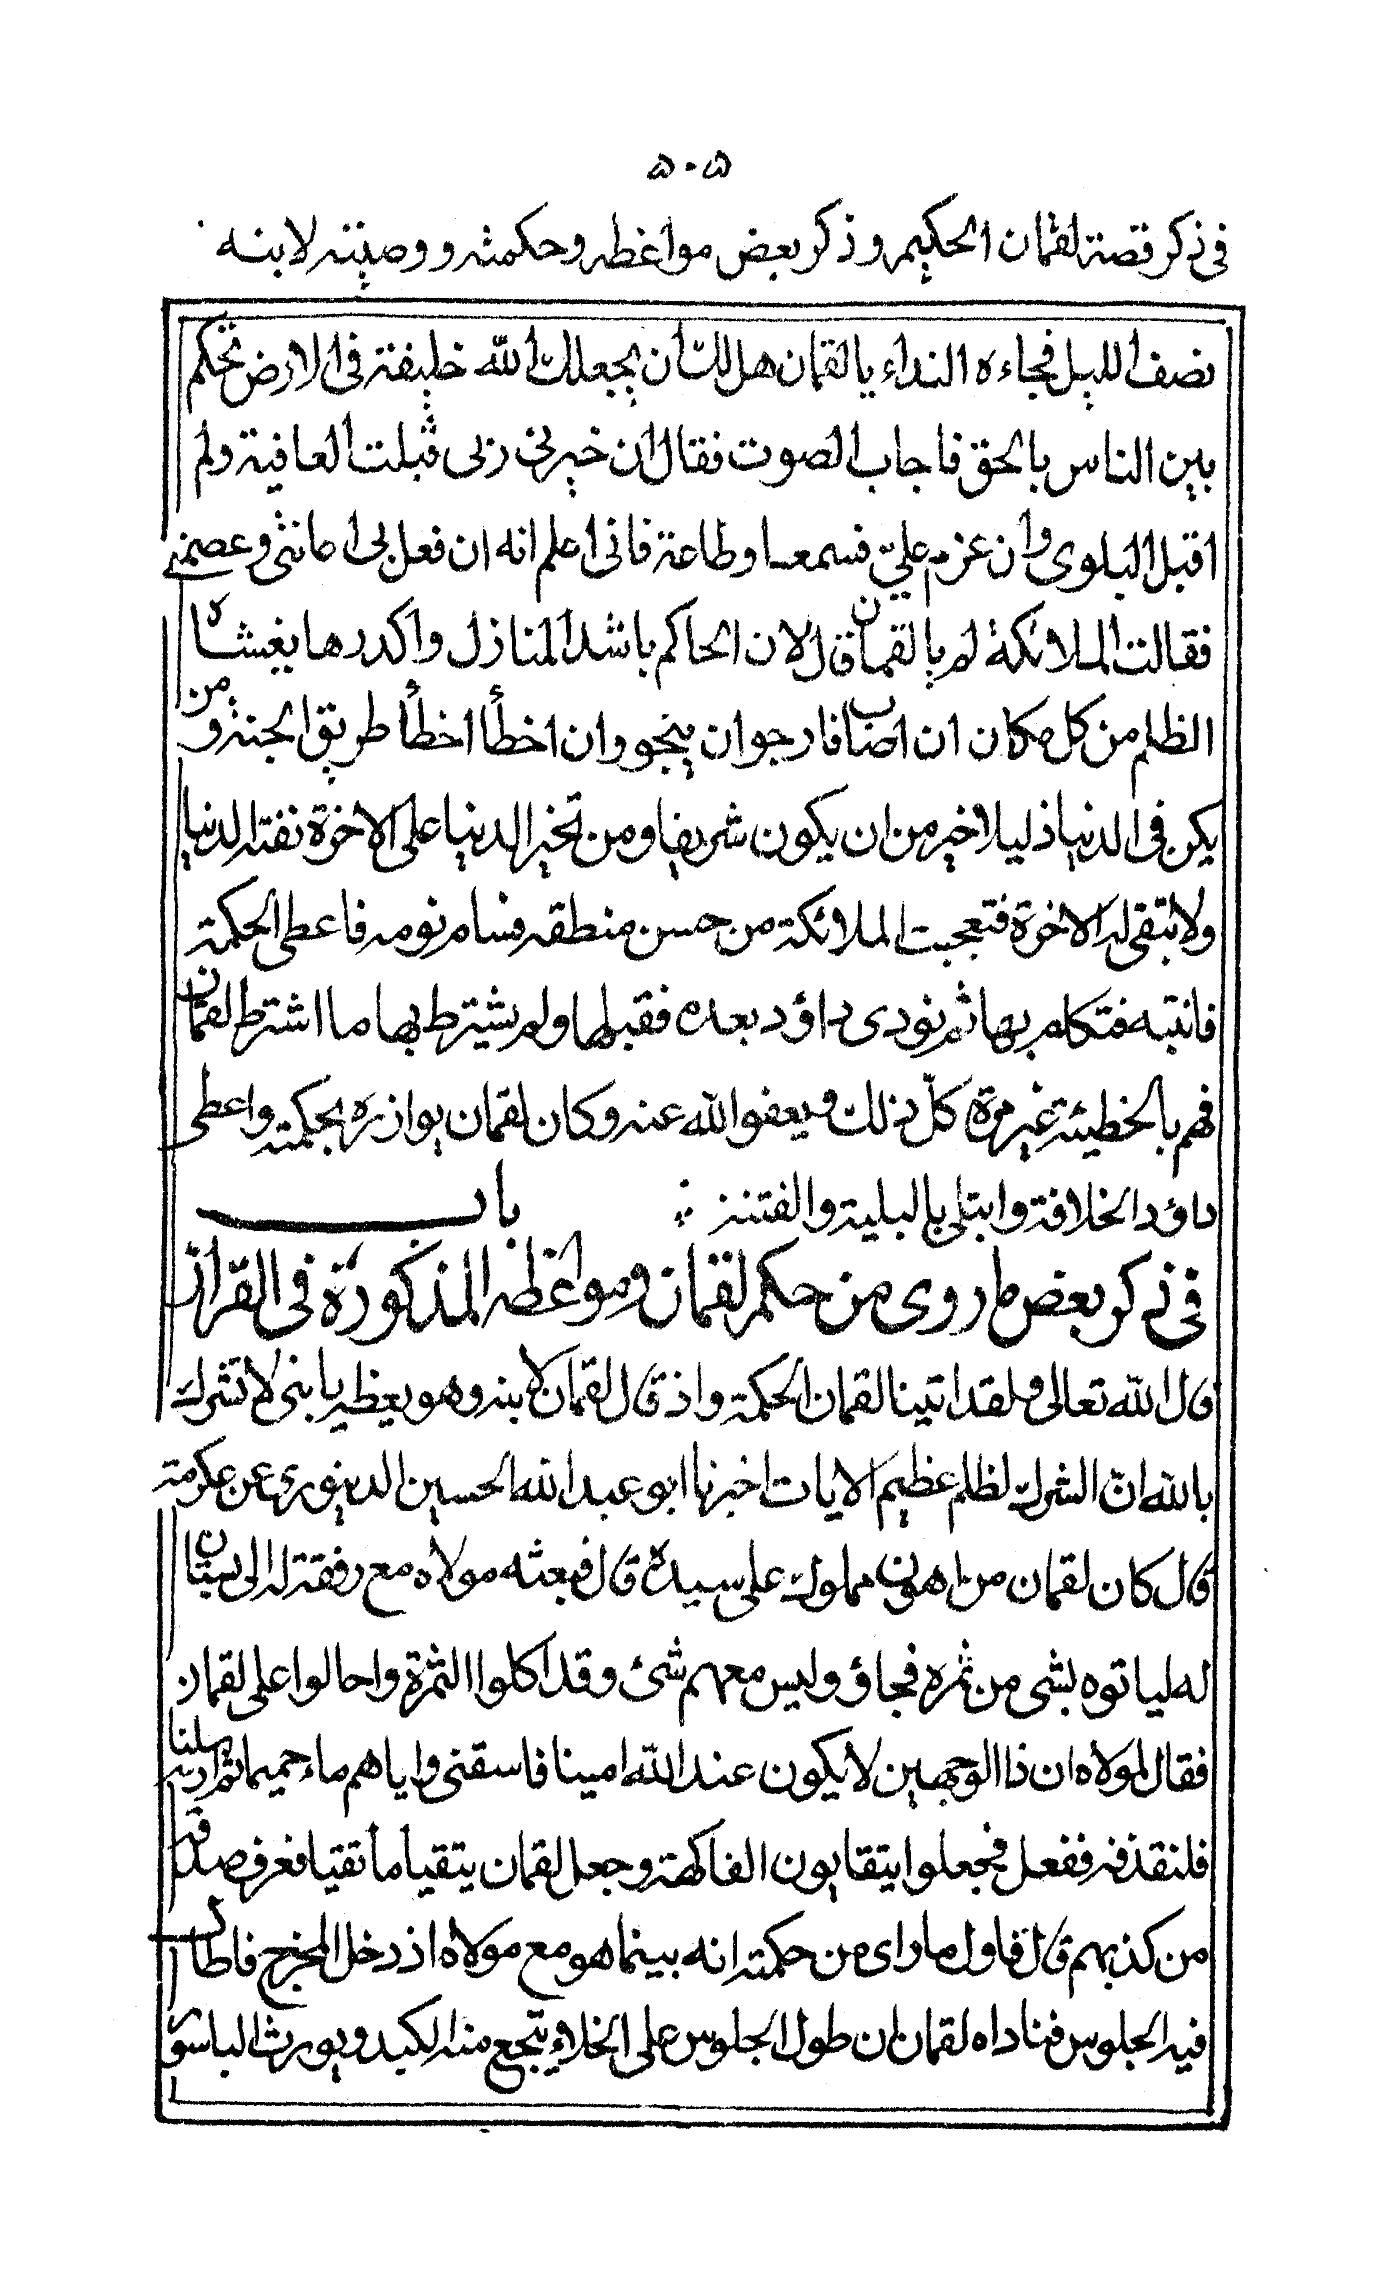 ۵۰۵
في ذكر قصة لقمان الحكيم و ذكر بعض مواعظه و حكمته و وصيته لابنه
نصف الليل فجاءه النداء يا لقمان هل لك ان يجعلك الله خليفة في الارض تحكم
بين الناس بالحق فاجاب الصوت فقال ان خيرني ربى قبلت العافية ولم
اقبل البلوى وان عزم عليّ فسمعا وطاعة فانى اعلم انه ان فعل بى اعاننى وعصمنى
فقالت الملائكة لم يا لقمان قال لان الحاكم باشد المنازل واكدرها يغشاه
الظلم من كل مكان ان اصاب فارجوان ينجو وان اخطأ اخطأ طريق الجنة ومن
يكن في الدنيا ذليلا خير من ان يكون شريفا ومن تخير الدنيا على الاخرة نفته الدنيا
ولا تبقى له الاخرة فتعجبت الملائكة من حسن منطقه فنام نومه فاعطى الحكمة
فانتبه فتكلم بها ثم نودى داؤد بعده فقبلها ولم يشترط بها ما اشترط لقمان
فهم بالخطيئة غير مرة كلّ ذلك ويعفو الله عنه وكان لقمان يوازره بحكمته واعطى
داؤد الخلافة وابتلى بالبلية والفتنة ∴ باب
في ذكر بعض ما روى من حكم لقمان ومواعظه المذكورة في القران
قال الله تعالى ولقد اتينا لقمان الحكمة واذ قال لقمان لابنه وهو يعظه يا بنى لا تشرك
بالله انّ الشرك لظلم عظيم الايات اخبرنا ابو عبد الله الحسين الدينورى عن عكرمة
قال كان لقمان من اهون مملوك على سيده قال فبعثه مولاه مع رفقة له الى بستان
له لياتوه بشى من ثمره فجاؤ وليس معهم شئ وقد اكلوا الثمرة واحالوا على لقمان
فقال لمولاه ان ذا الوجهين لا يكون عند الله امينا فاسقنى واياهم ماء حميما ثم ارسلنا
فلنقذفه ففعل فجعلوا يتقايون الفاكهة وجعل لقمان يتقيأ ماً نقيا فعرف صدقه
من كذبهم قال فاول ماراى من حكمته انه بينما هو مع مولاه اذ دخل المخرج فاطال
فيه الجلوس فناداه لقمان ان طول الجلوس على الخلاء يتجع منه الكبد ويورث الباسور